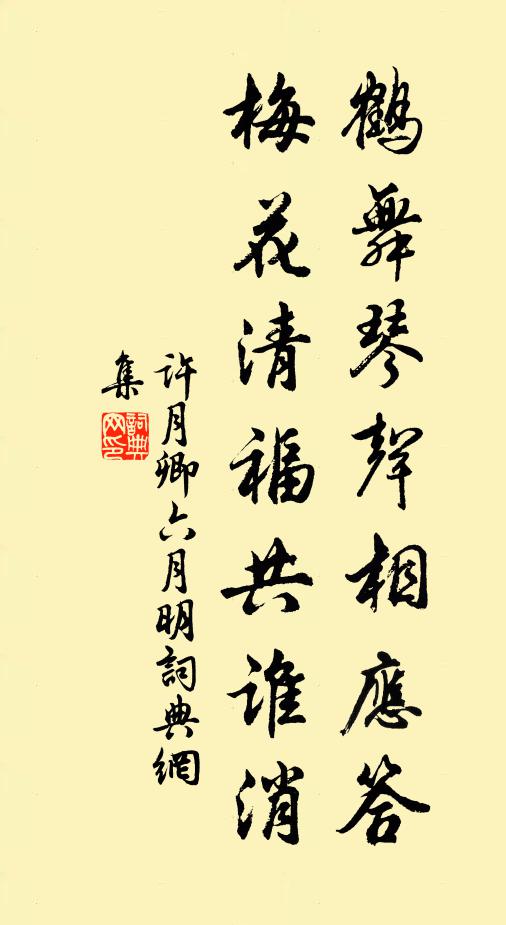 鶴舞琴聲相應答
梅花清福共誰消
許月卿六月明詞典網
集
詞典
网印